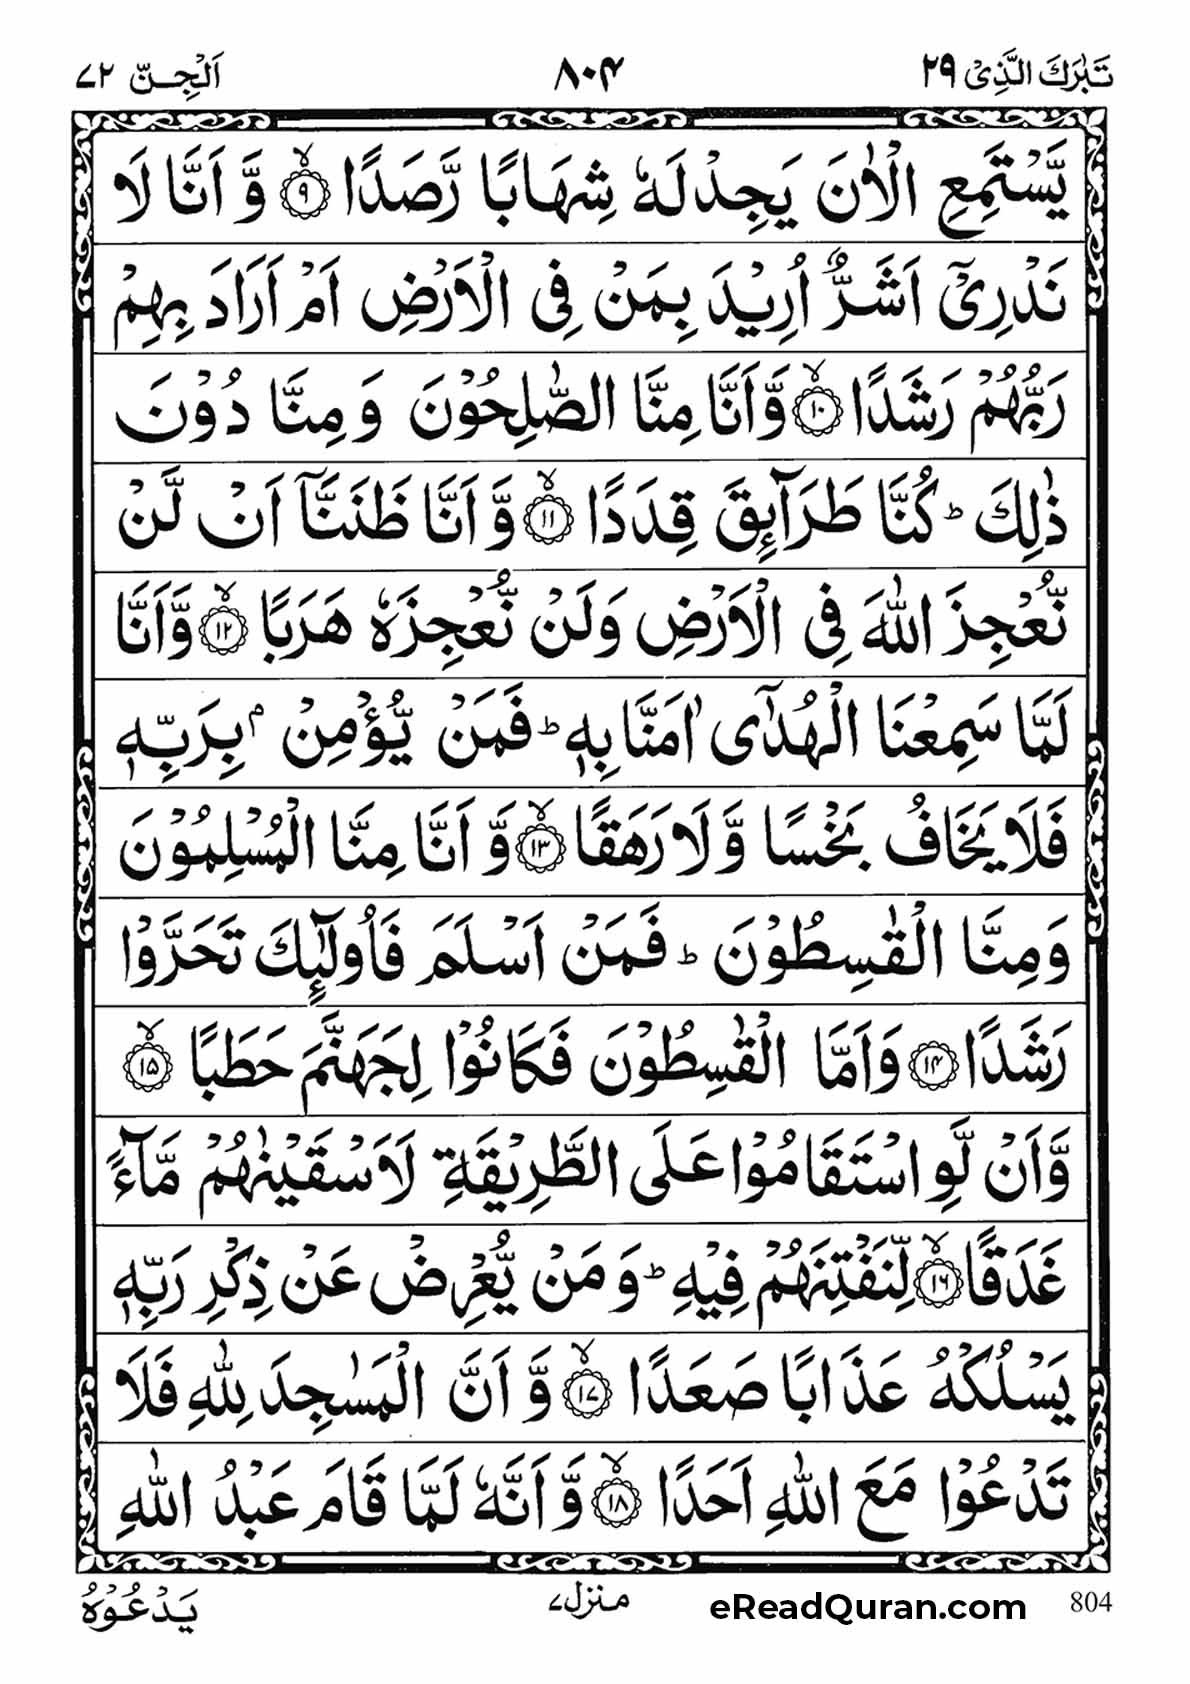 تَبٰرَكَ الَّذِىْ ٢٩
٨٠٤
اَلْجِنّ ٧٢
يَّسْتَمِعِ الْاٰنَ يَجِدْ لَهٗ شِهَابًا رَّصَدًا ۙ‏﴿۹﴾ وَّ اَنَّا لَا
نَدْرِىْۤ اَشَرٌّ اُرِيْدَ بِمَنْ فِى الْاَرْضِ اَمْ اَرَادَ بِهِمْ
رَبُّهُمْ رَشَدًا ۙ‏﴿۱۰﴾ وَّاَنَّا مِنَّا الصّٰلِحُوْنَ وَمِنَّا دُوْنَ
ذٰلِكَ ؕ كُنَّا طَرَآئِقَ قِدَدًا ۙ‏﴿۱۱﴾ وَّاَنَّا ظَنَنَّاۤ اَنْ لَّنْ
نُّعْجِزَ اللّٰهَ فِى الْاَرْضِ وَلَنْ نُّعْجِزَهٗ هَرَبًا ۙ‏﴿۱۲﴾ وَّاَنَّا
لَمَّا سَمِعْنَا الْهُدٰٓى اٰمَنَّا بِهٖ ؕ فَمَنْ يُّؤْمِنْۢ بِرَبِّهٖ
فَلَا يَخَافُ بَخْسًا وَّلَا رَهَقًا ۙ‏﴿۱۳﴾ وَّاَنَّا مِنَّا الْمُسْلِمُوْنَ
وَمِنَّا الْقٰسِطُوْنَ ؕ فَمَنْ اَسْلَمَ فَاُولٰٓئِكَ تَحَرَّوْا
رَشَدًا ‏﴿۱۴﴾ وَاَمَّا الْقٰسِطُوْنَ فَكَانُوْا لِجَهَنَّمَ حَطَبًا ۙ‏﴿۱۵﴾
وَّاَنْ لَّوِ اسْتَقَامُوْا عَلَى الطَّرِيْقَةِ لَاَسْقَيْنٰهُمْ مَّآءً
غَدَقًا ۙ‏﴿۱۶﴾ لِّنَفْتِنَهُمْ فِيْهِ ؕ وَمَنْ يُّعْرِضْ عَنْ ذِكْرِ رَبِّهٖ
يَسْلُكْهُ عَذَابًا صَعَدًا ۙ‏﴿۱۷﴾ وَّاَنَّ الْمَسٰجِدَ لِلّٰهِ فَلَا
تَدْعُوْا مَعَ اللّٰهِ اَحَدًا ۙ‏﴿۱۸﴾ وَّاَنَّهٗ لَمَّا قَامَ عَبْدُ اللّٰهِ
804
eReadQuran.com
منزل٧
يَدْعُوْهُ